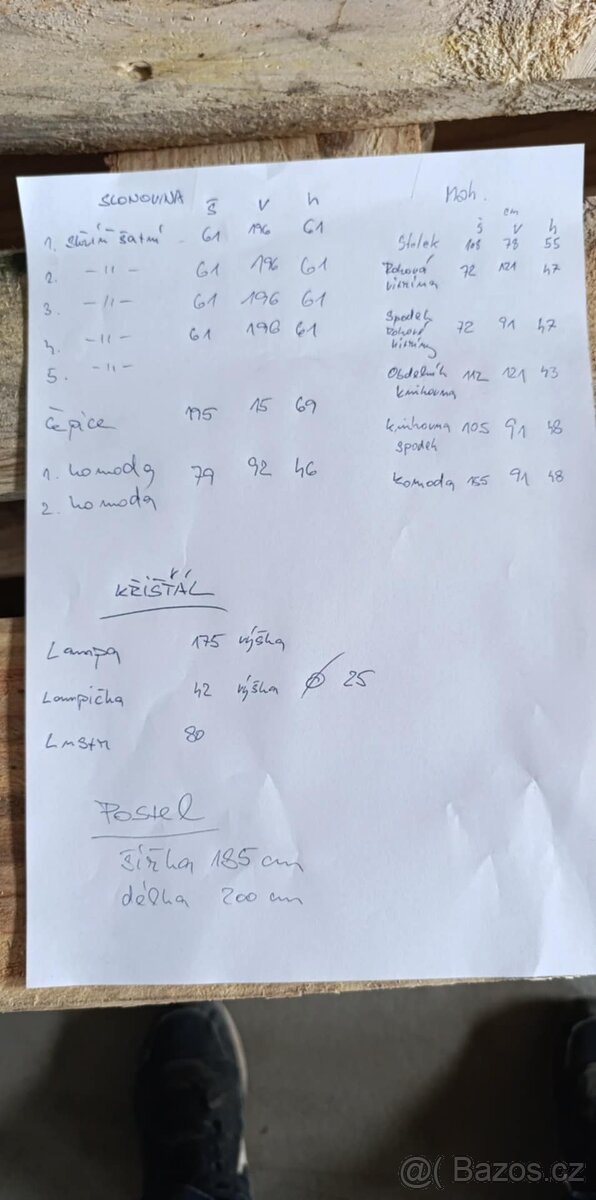 SLONOVINA Š V h
1. skříň šatní - 61 196 61
2. -"- 61 196 61
3. -"- 61 196 61
4. -"- 61 196 61
5. -"-
čepice 195 15 69
1. komoda 79 92 46
2. komoda
Mah.
cm
š v h
Stolek 108 78 55
Rohová 72 121 47
vitrína
Spodek
Rohové 72 91 47
vitríny
Obdelník 112 121 43
knihovna
knihovna 105 91 48
spodek
komoda 155 91 48
KŘIŠŤÁL
Lampa 175 výška
Lampička 42 výška ø 25
Lustr 80
Postel
šířka 185 cm
délka 200 cm
@( Bazos.cz